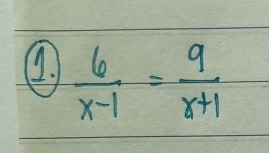 1. 6/(x-1) = 9/(x+1)